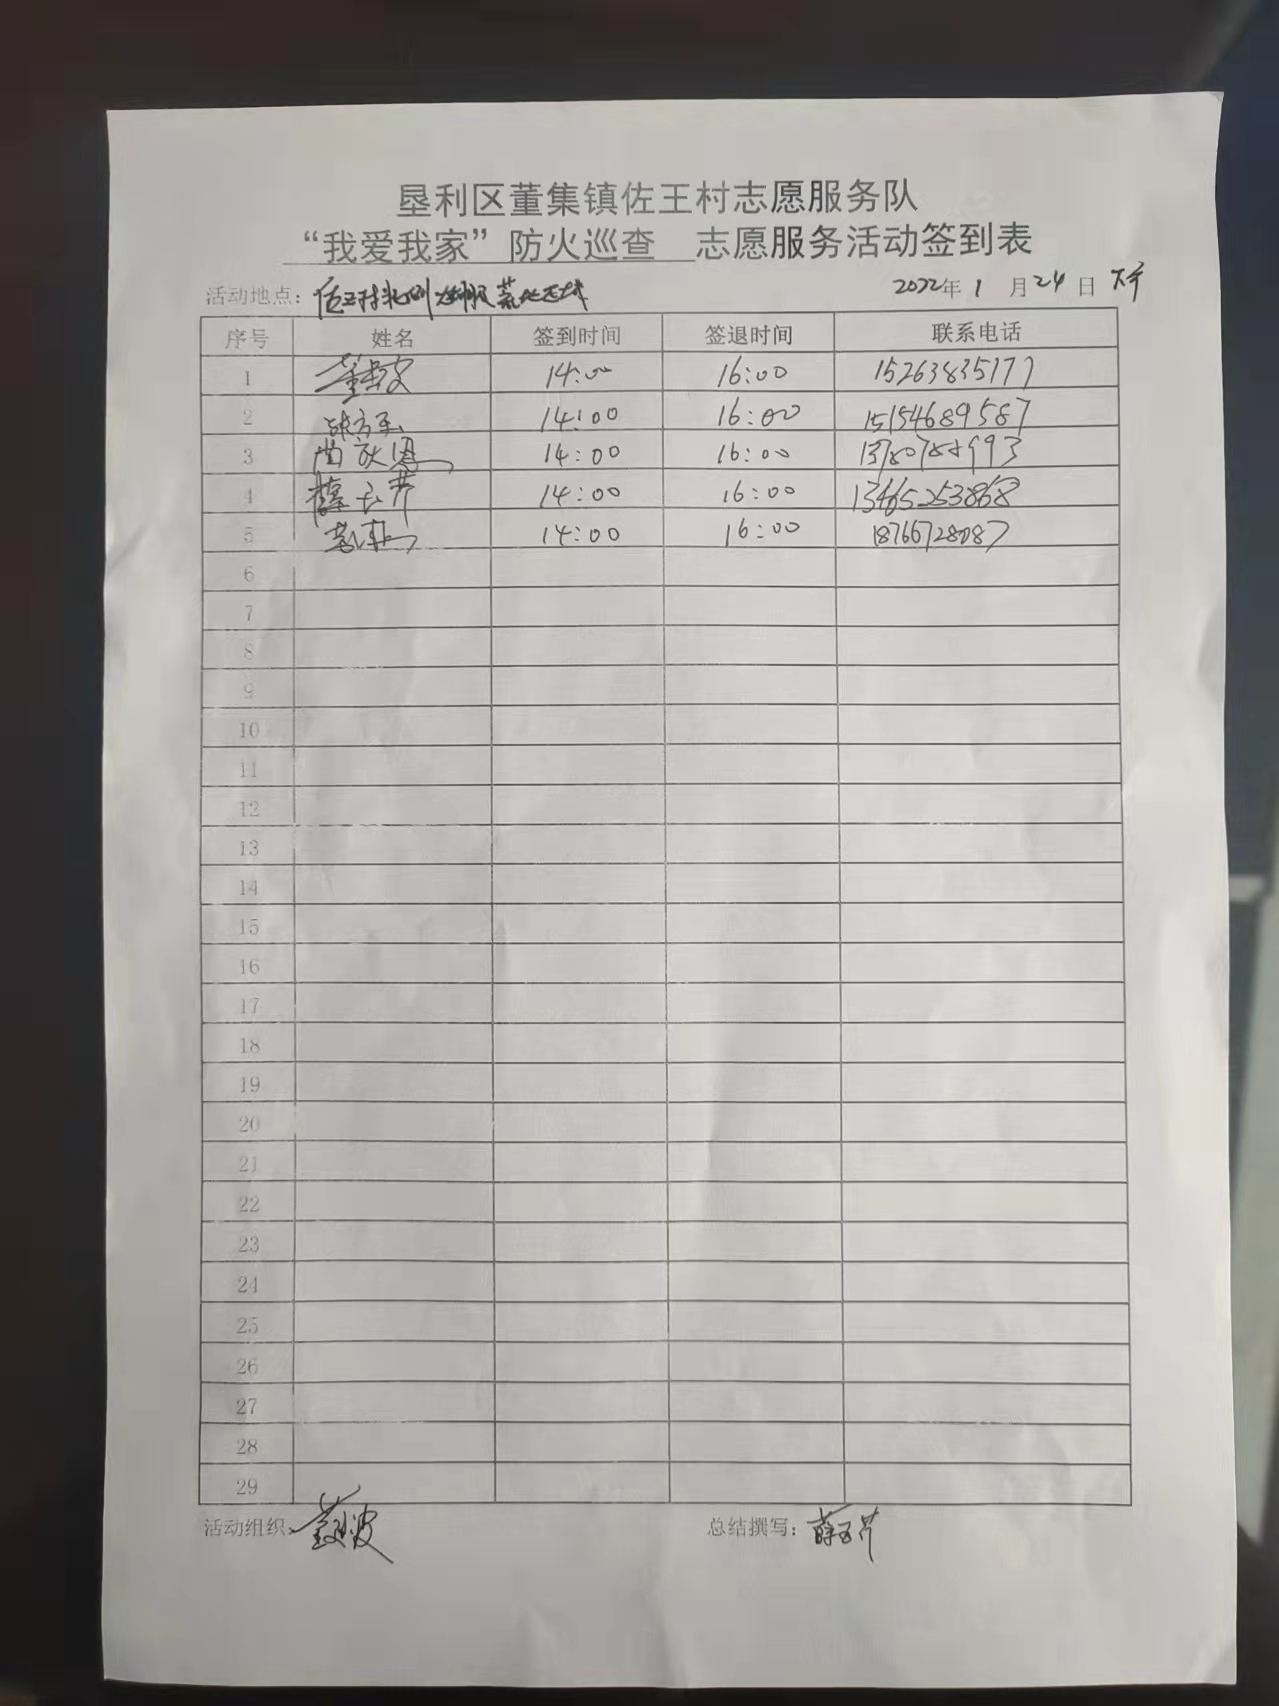 垦利区董集镇佐王村志愿服务队
“我爱我家”防火巡查 志愿服务活动签到表
活动地点： 2022年1月24日 下午
序号 姓名 签到时间 签退时间 联系电话
1 14:00 16:00 15263835177
2 14:00 16:00 15154689587
3 14:00 16:00
4 14:00 16:00 13465253868
5 14:00 16:00 18766728087
6
7
8
9
10
11
12
13
14
15
16
17
18
19
20
21
22
23
24
25
26
27
28
29
活动组织： 总结撰写：